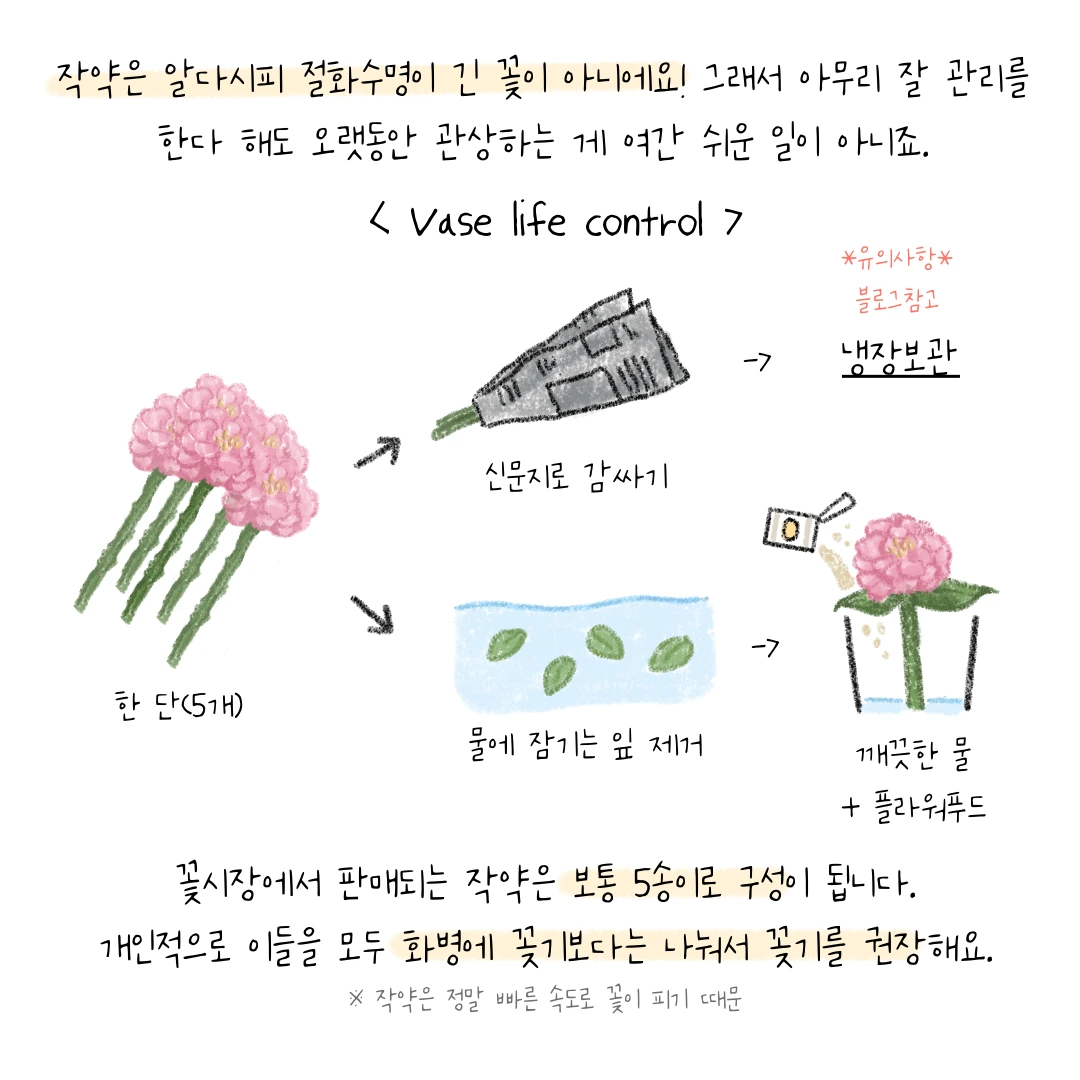 작약은 알다시피 절화수명이 긴 꽃이 아니에요! 그래서 아무리 잘 관리를
한다 해도 오랫동안 관상하는 게 여간 쉬운 일이 아니죠.
< Vase life control >
*유의사항*
블로그참고
-> 냉장보관
신문지로 감싸기
한 단(5개)
->
물에 잠기는 잎 제거
깨끗한 물
+ 플라워푸드
꽃시장에서 판매되는 작약은 보통 5송이로 구성이 됩니다.
개인적으로 이들을 모두 화병에 꽂기보다는 나눠서 꽂기를 권장해요.
※ 작약은 정말 빠른 속도로 꽃이 피기 때문